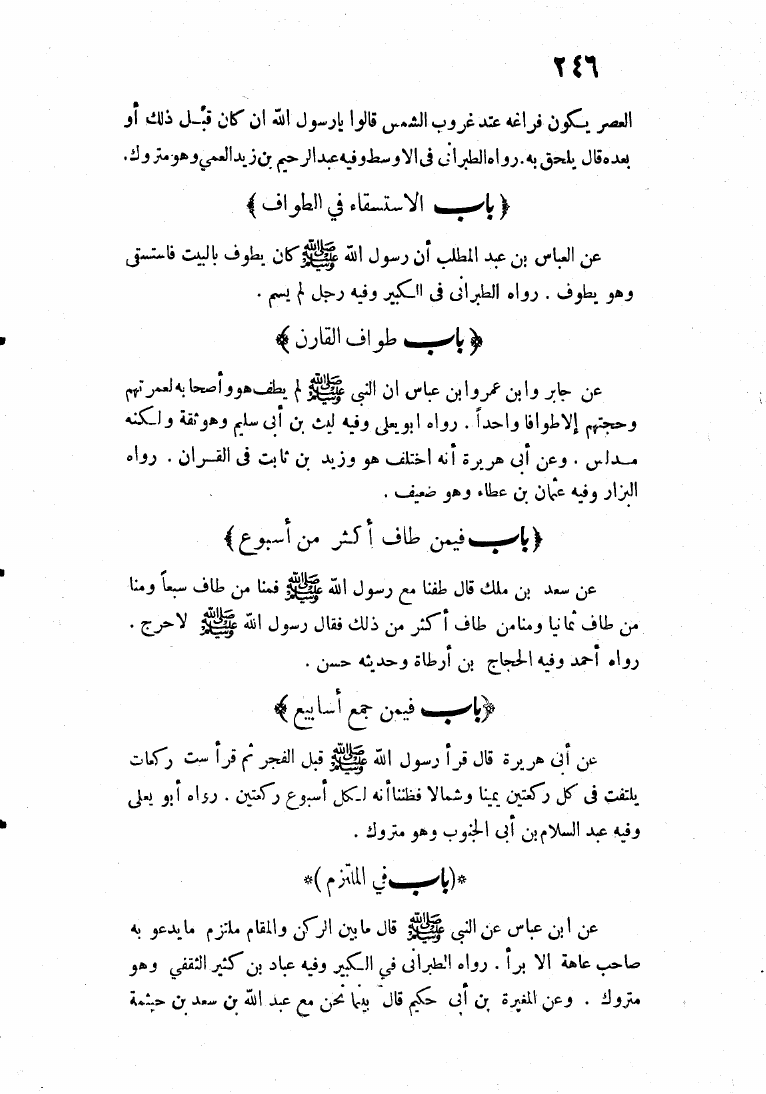 ٢٤٦
العصر يكون فراغه عند غروب الشمس قالوا يارسول الله ان كان قبل ذلك أو
بعده قال يلحق به. رواه الطبرانى فى الاوسط وفيه عبد الرحيم بن زيد العمي وهو متروك.
﴿باب الاستسقاء في الطواف﴾
عن العباس بن عبد المطلب أن رسول الله ﷺ كان يطوف بالبيت فاستسقى
وهو يطوف . رواه الطبرانى فى الكبير وفيه رجل لم يسم .
﴿باب طواف القارن﴾
عن جابر وابن عمر وابن عباس ان النبي ﷺ لم يطف هو وأصحابه لعمرتهم
وحجتهم إلا طوافا واحداً . رواه ابو يعلى وفيه ليث بن أبى سليم وهو ثقة ولكنه
مدلس . وعن أبى هريرة أنه اختلف هو وزيد بن ثابت فى القران . رواه
البزار وفيه عثمان بن عطاء وهو ضعيف .
﴿باب فيمن طاف أكثر من أسبوع﴾
عن سعد بن ملك قال طفنا مع رسول الله ﷺ فمنا من طاف سبعاً ومنا
من طاف ثمانيا ومنا من طاف أكثر من ذلك فقال رسول الله ﷺ لا حرج .
رواه أحمد وفيه الحجاج بن أرطاة وحديثه حسن .
﴿باب فيمن جمع أسابيع﴾
عن أبى هريرة قال قرأ رسول الله ﷺ قبل الفجر ثم قرأ ست ركعات
يلتفت فى كل ركعتين يمينا وشمالا فظننا أنه لكل أسبوع ركعتين . رواه أبو يعلى
وفيه عبد السلام بن أبى الجنوب وهو متروك .
*(باب في الملتزم)*
عن ابن عباس عن النبي ﷺ قال مابين الركن والمقام ملتزم مايدعو به
صاحب عاهة الا برأ . رواه الطبرانى في الكبير وفيه عباد بن كثير الثقفي وهو
متروك . وعن المغيرة بن أبى حكيم قال بينما نحن مع عبد الله بن سعد بن حيثمة